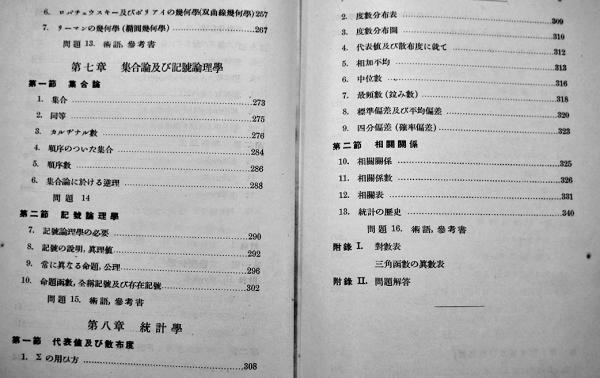 6. ロバチェウスキー及びボリアイの幾何學(双曲線幾何學) 257
7. リーマンの幾何學(橢圓幾何學) 267
問題 13. 術語, 參考書
第七章 集合論及び記號論理學
第一節 集合論
1. 集合 273
2. 同等 275
3. カルヂナル數 276
4. 順序のついた集合 284
5. 順序數 286
6. 集合論に於ける逆理 288
問題 14
第二節 記號論理學
7. 記號論理學の必要 290
8. 記號の説明, 真理値 292
9. 常に真なる命題, 公理 296
10. 命題函數, 全稱記號及び存在記號 302
問題 15. 術語, 參考書
第八章 統計學
第一節 代表値及び散布度
1. Σ の用ひ方 308
2. 度數分布表 309
3. 度數分布圖 310
4. 代表値及び散布度に就て 312
5. 相加平均 313
6. 中位數 316
7. 最頻數(竝み數) 318
8. 標準偏差及び平均偏差 320
9. 四分偏差(確率偏差) 323
第二節 相關關係
10. 相關關係 325
11. 相關係數 326
12. 相關表 331
13. 統計の歴史 340
問題 16. 術語, 參考書
附錄 I. 對數表
三角函數の真數表
附錄 II. 問題解答